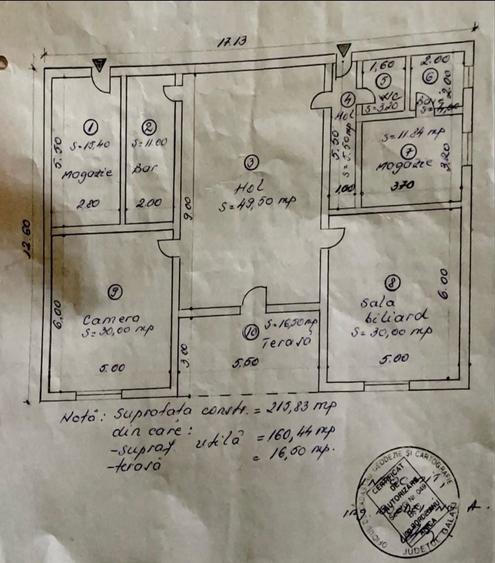 17.13
12.60
1
S=15,40
Magazie
5.50
2.80
2
S=11.00
Bar
2.00
3
Hol
S=49,50 mp
9.00
4
Hol
S=5.50 mp
5.50
1,00
1,60
5
WC
S=3.20
2.00
6
2.00
S=11.84 mp
7
Magazie
3,20
370
8
Sala
biliard
S=30,00 mp
6.00
5.00
9
Camera
S=30,00 mp
6,00
5.00
10
S=16,50 mp
Terasă
3,00
5,50
Notă: Suprafata constr. = 215,83 mp
din care:
-supraf. utilă = 160,44 mp
-terasă = 16,50 mp.
CERTIFICAT
DE
AUTORIZARE
JUDEȚUL GALAȚI